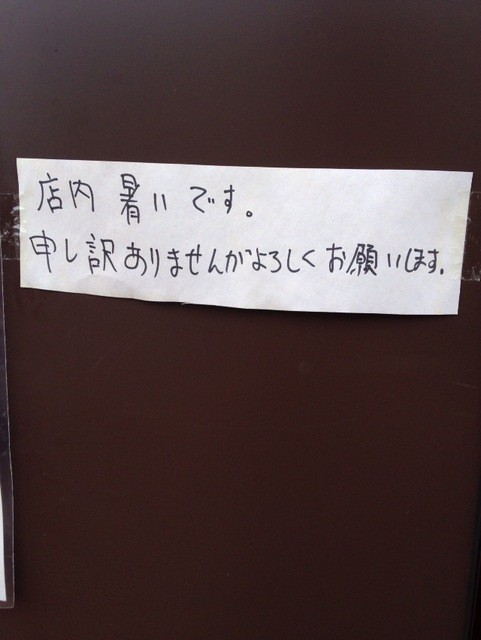 店内 暑いです。
申し訳ありませんがよろしくお願いします。